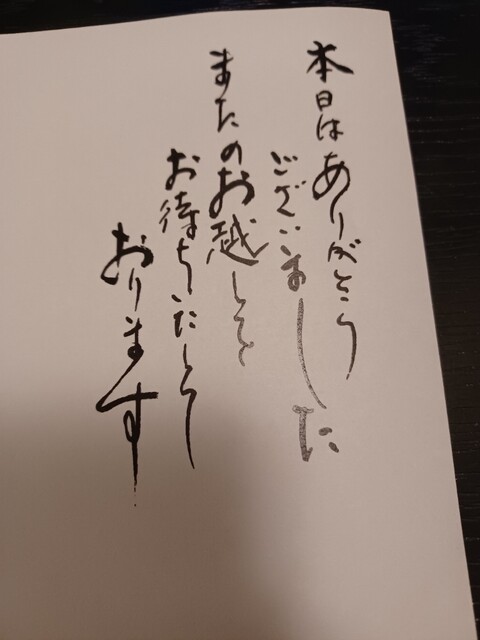 本日はありがとう
ございました
またのお越しを
お待ちいたして
おります